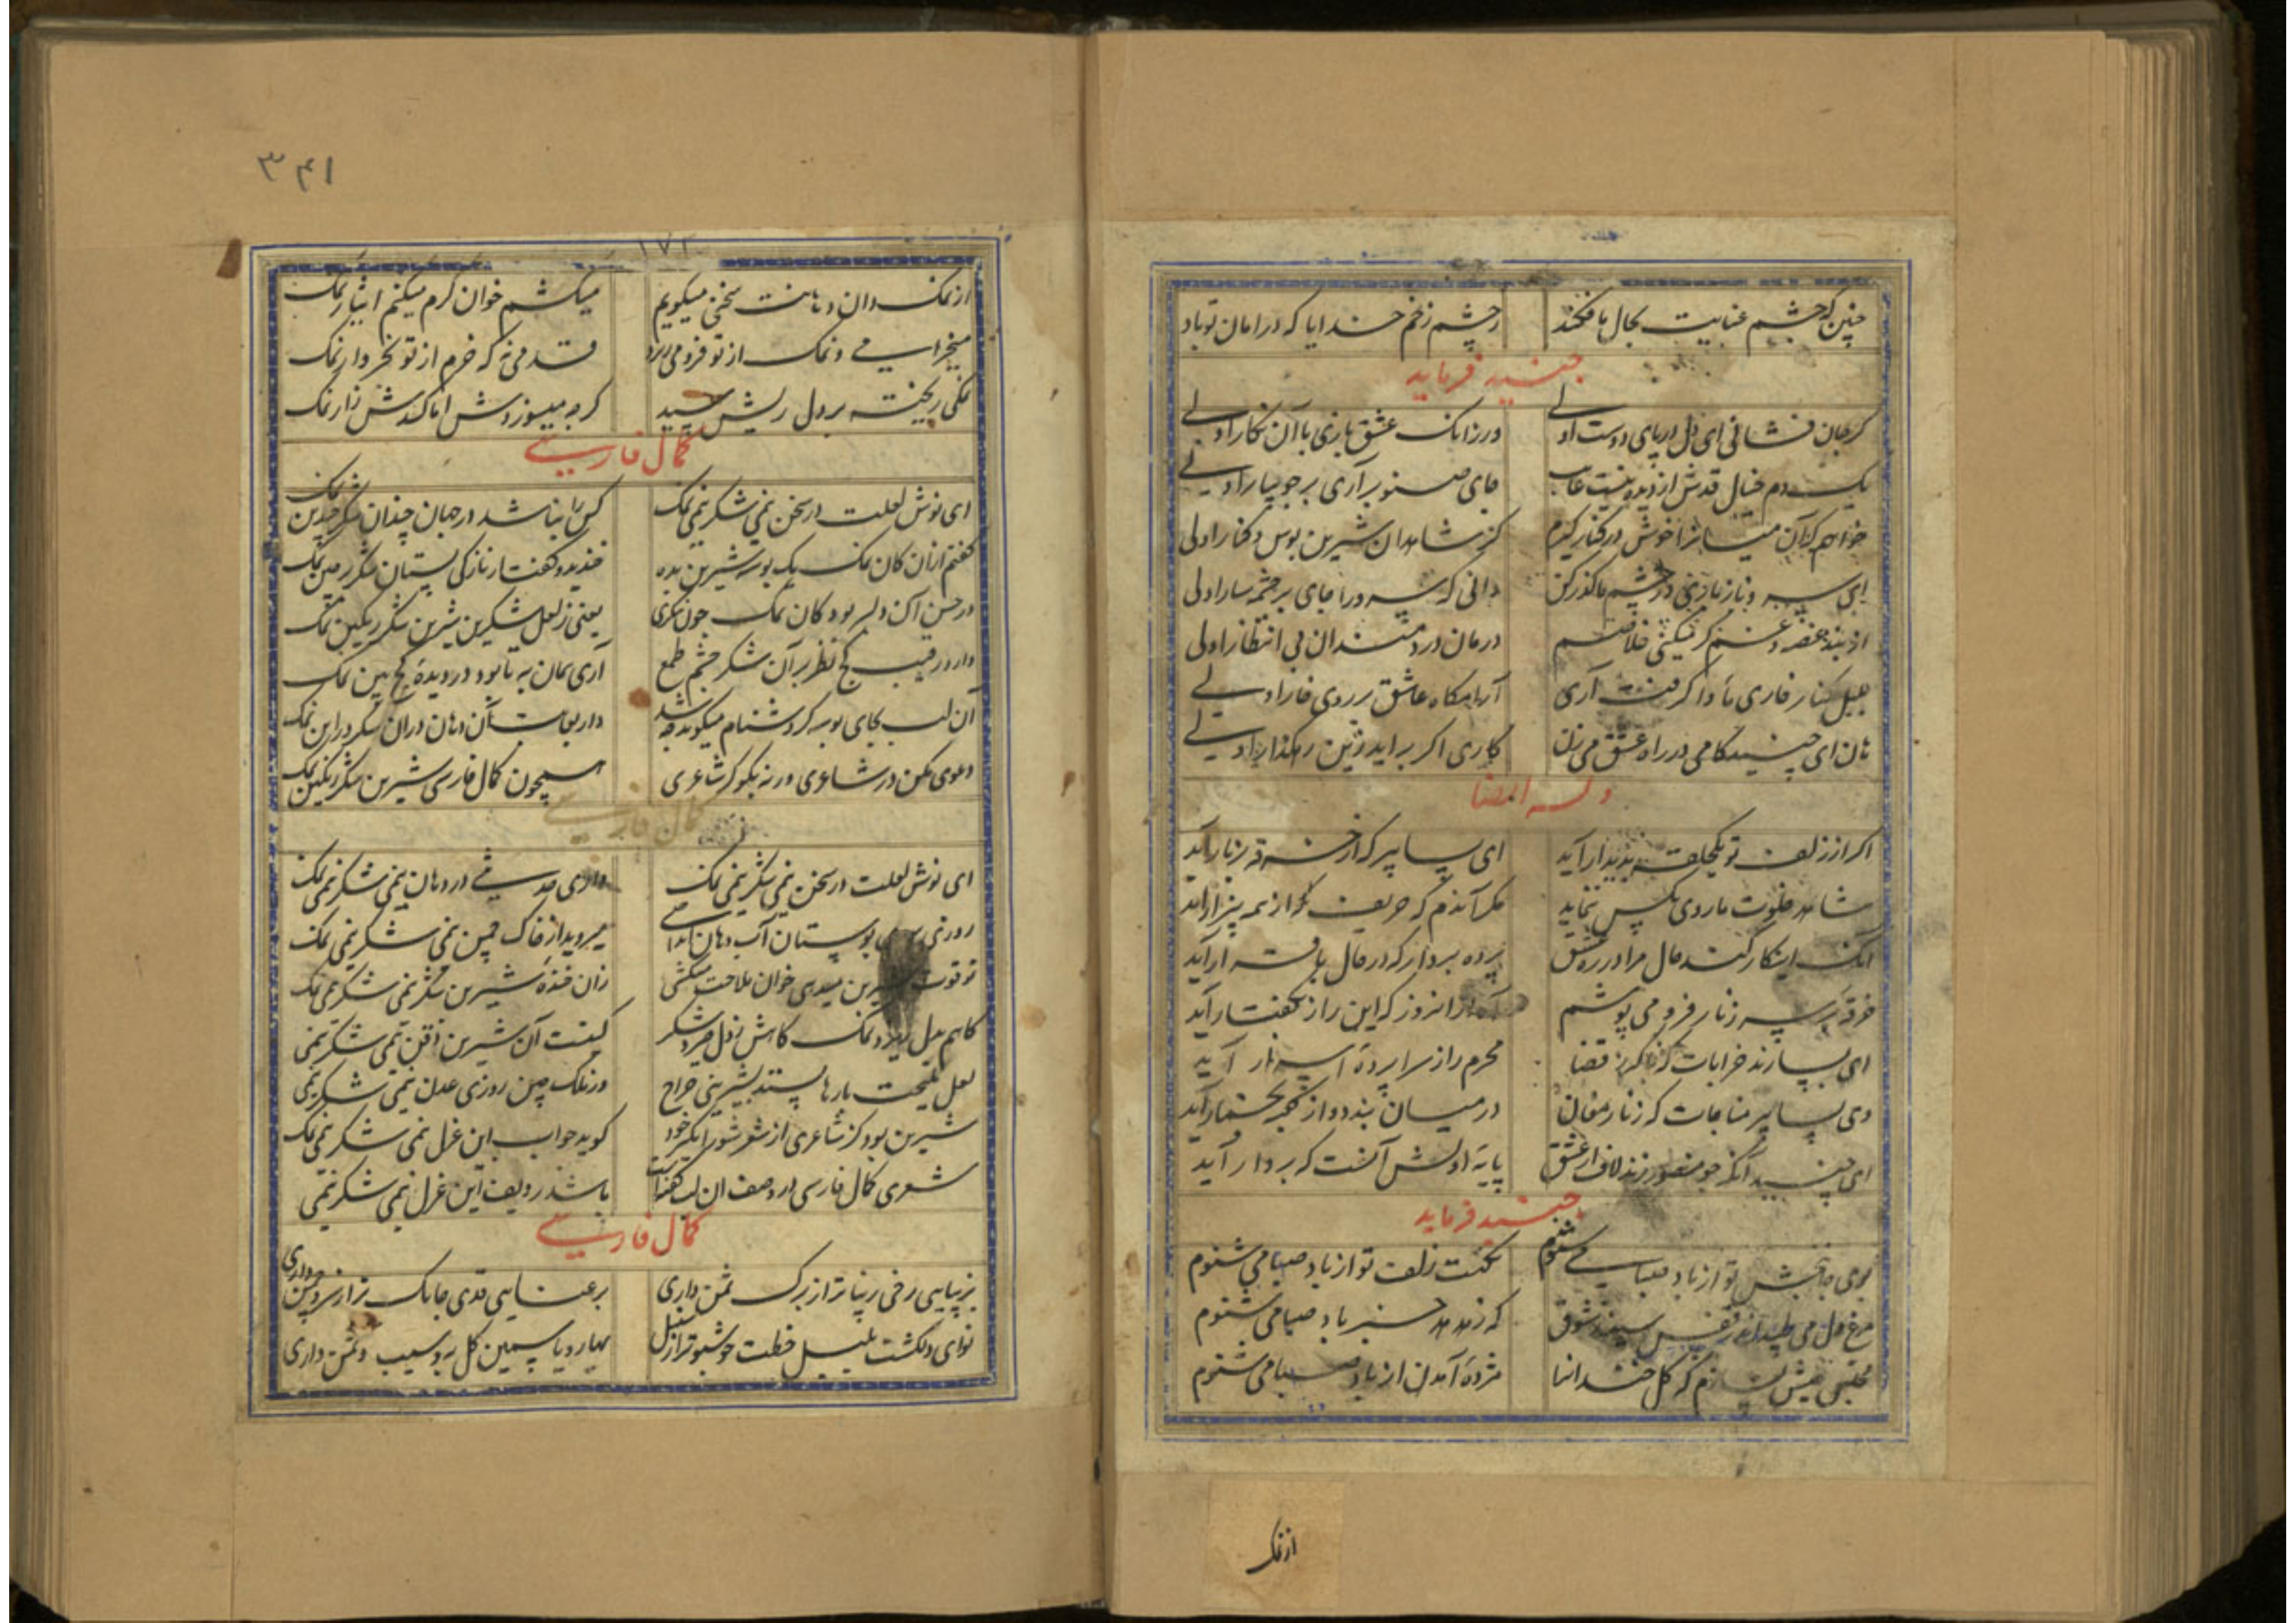 چنین که چشم عنایت بحال ما فکند
ز چشم زخم خدایا که در امان تو باد
جنید فرماید
گر جان فشانی ای دل در پای دوست اولی
ور زانک عشق بازی با آن نگار اولی
یک دم خیال قدش از دیده نیست غایب
جای صنوبر آری بر جویبار اولی
خواهم که آن میانرا خوش در کنار گیرم
کز شاهدان شیرین بوس و کنار اولی
ای سرو ناز بازی در چشم ما گذر کن
دانی که سرو را جای بر چشمه سار اولی
از بند غصه و غم گر میکنی خلاصم
درمان دردمندان بی انتظار اولی
کنار خاری مأوا گرفت آری
آرامگاه عاشق بر روی خار اولی
هان ای جنید گامی در راه عشق می زن
کاری اگر برآید زین رهگذار اولی
وله ایضا
اگر از زلف تو یکحلقه پدیدار آید
ای بسا پیر که از خرقه بزنار آید
شاهد خلوت ما روی بکس ننماید
مگر آندم که حریف از همه بیزار آید
آنک انکار کند حال مرا در ره عشق
پرده بردار که در حال باقرار آید
خرقه بر سر زنار فرو می پوشم
آه از انروز که این راز بگفتار آید
ای بسا رند خرابات که قضا
محرم راز سراپرده اسرار آید
وی بسا پیر مناجات که زنار مغان
در میان بندد و از کعبه بخمار آید
ای جنید آنکه چو منصور زند لاف از عشق
پایه اولش آنست که بر دار آید
جنید فرماید
بوی جانبخش تو از باد صبا می شنوم
نکهت زلف تو از باد صبا می شنوم
مرغ دل می طپد اندر قفس سینه ز شوق
که ز هدهد خبر باد صبا می شنوم
مجلس عیش بسازم که گل خندانرا
مژده آمدن از باد صبا می شنوم
از نمک
۳۴۱
۱۷۲
از نمک دان دهانت سخنی میگویم
میکشم خوان کرم میکنم ایثار نمک
میخرامی و نمک از تو فرو می ریزد
قدمی نه که خرم از تو بخروار نمک
نمکی ریخته بر دل ریش جنید
گرچه میسوزدش اما کندش زار نمک
کمال فارسی
ای نوش لعلت در سخن نیمی شکر نیمی نمک
کس را نباشد در جهان چندان شکر چندین نمک
گفتم ازان کان نمک یک بوسه شیرین بده
خندید و گفتا ناز کی بستان شکر نمک
در حسن آن دلبر بود کان نمک چون بنگری
یعنی ز لعل شکرین شیرین شکر نمکین نمک
دارد رقیب کج نظر بر آن شکر چشم طمع
آری همان به تا بود در دیده کج بین نمک
آن لب بجای بوسه گر دشنام میگوید چه شد
دارد آن دهان در آن شکر در این نمک
دعوی مکن در شاعری ورنه بگو گر شاعری
همچون کمال فارسی شیرین شکر نمکین نمک
کمال فارسی
ای نوش لعلت در سخن نیمی شکر نیمی نمک
داری حدیثی در دهان نیمی شکر نیمی نمک
روزی بوستان آب دهان
میروید از خاک چمن نیمی شکر نیمی نمک
تو قوت شیرین میدهی خوان ملاحت میکشی
زان خنده شیرین شکر نیمی شکر نیمی نمک
کاهم بدل ریزد نمک کاهش
گفت آن شیرین ذقن نیمی شکر نیمی
لعل ملیحت بارها بستد بشیرینی خراج
ور نمک چین روزی عدن نیمی شکر نیمی
شیرین بود کز شاعری از شعر شورانگیز خود
گوید جواب این غزل نیمی شکر نیمی نمک
شعری کمال فارسی در وصف آن لب گفته است
باشد ردیف این غزل نیمی شکر نیمی
کمال فارسی
بزیبایی رخی زیباتر از برگ سمن داری
برعنایی قدی چابک تر از سرو چمن داری
نوای دلکشت بلبل خطت خوشبوتر از سنبل
بهار و یاسمین گل به و سیب و سمن داری